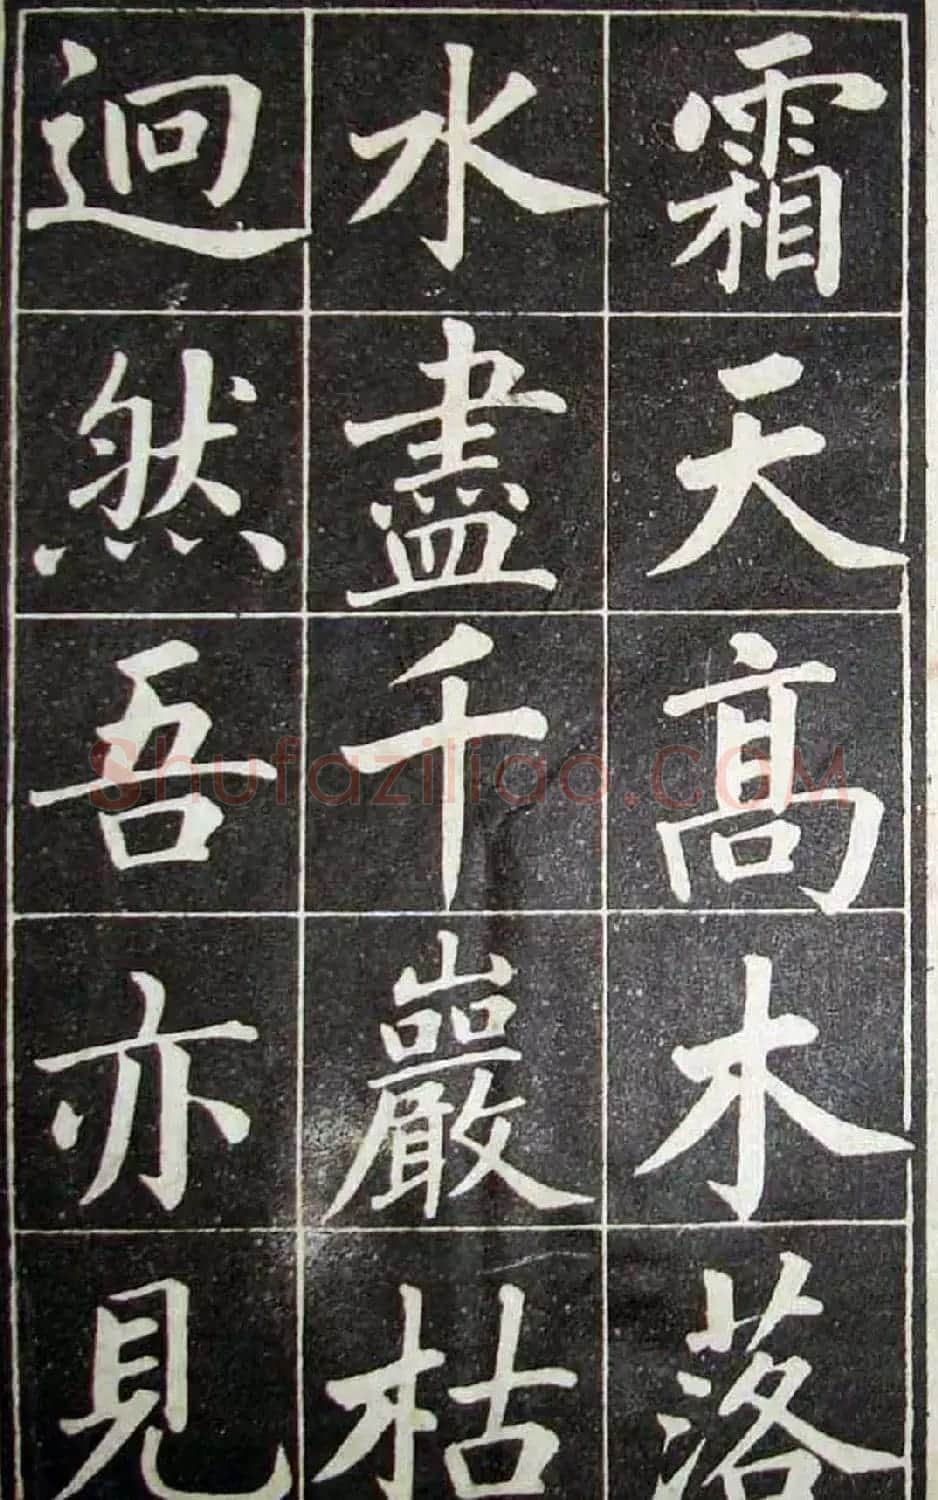 霜天高木落
水盡千巖枯
迥然吾亦見
Shufaziliao.com